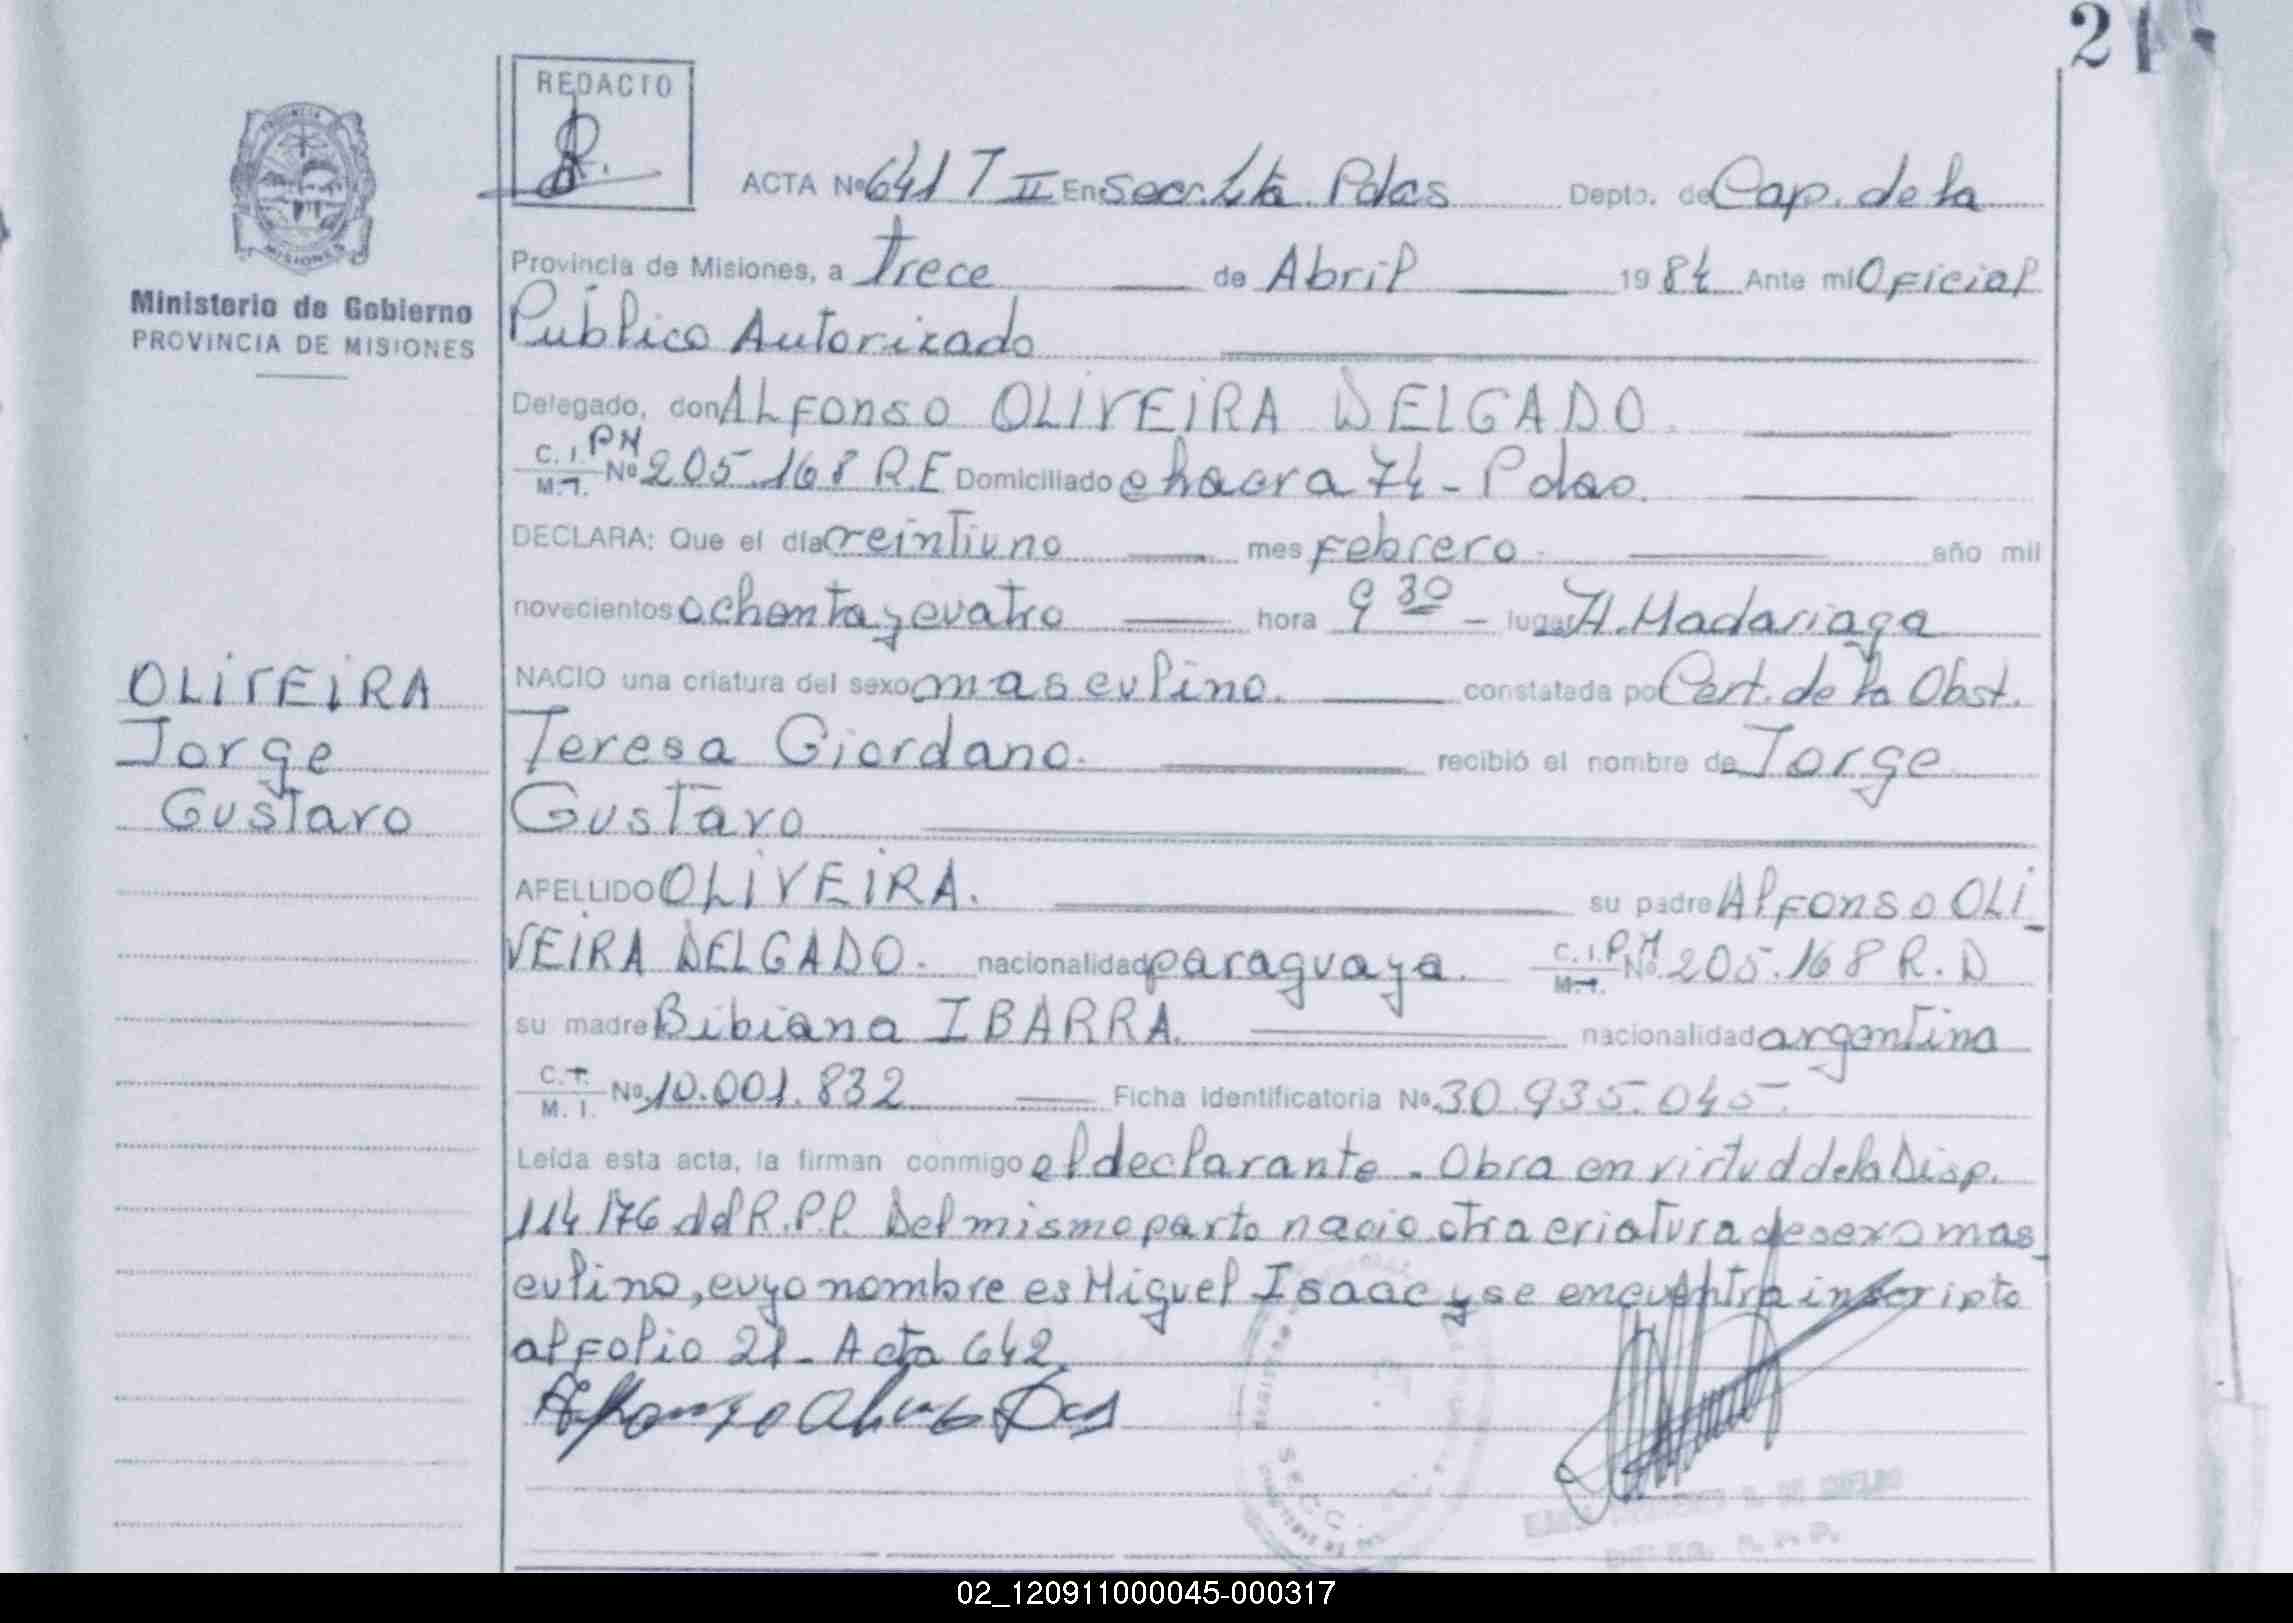 21
REDACTO
ACTA Nº 641 T II En Secc. 4ta Pdas Depto. de Cap. de la
Provincia de Misiones, a Trece de Abril 1984 Ante mi Oficial
Ministerio de Gobierno
PROVINCIA DE MISIONES
Público Autorizado
Delegado, don ALFONSO OLIVEIRA DELGADO.
C. I. PM
M. I. Nº 205.168 R.E Domiciliado chacra 74 - Pdas.
DECLARA: Que el día veintiuno mes Febrero. año mil
novecientos ochenta y cuatro hora 9 30 - lugar H. Madariaga
OLIVEIRA
Jorge
Gustavo
NACIO una criatura del sexo masculino. constatada por Cert. de la Obst.
Teresa Giordano. recibió el nombre de Jorge
Gustavo
APELLIDO OLIVEIRA. su padre Alfonso OLI
VEIRA DELGADO. nacionalidad paraguaya. C. I. PM M. I. Nº 205.168 R. D
su madre Bibiana IBARRA. nacionalidad argentina
C. I. M. I. Nº 10.001.832 Ficha Identificatoria Nº 30.935.045.
Leída esta acta, la firman conmigo el declarante. Obra en virtud de la Disp.
114/76 del R.P.P. Del mismo parto nacio otra criatura de sexo mas_
culino, cuyo nombre es Miguel Isaac y se encuentra inscripto
al Folio 21 - Acta 642.
02_120911000045-000317